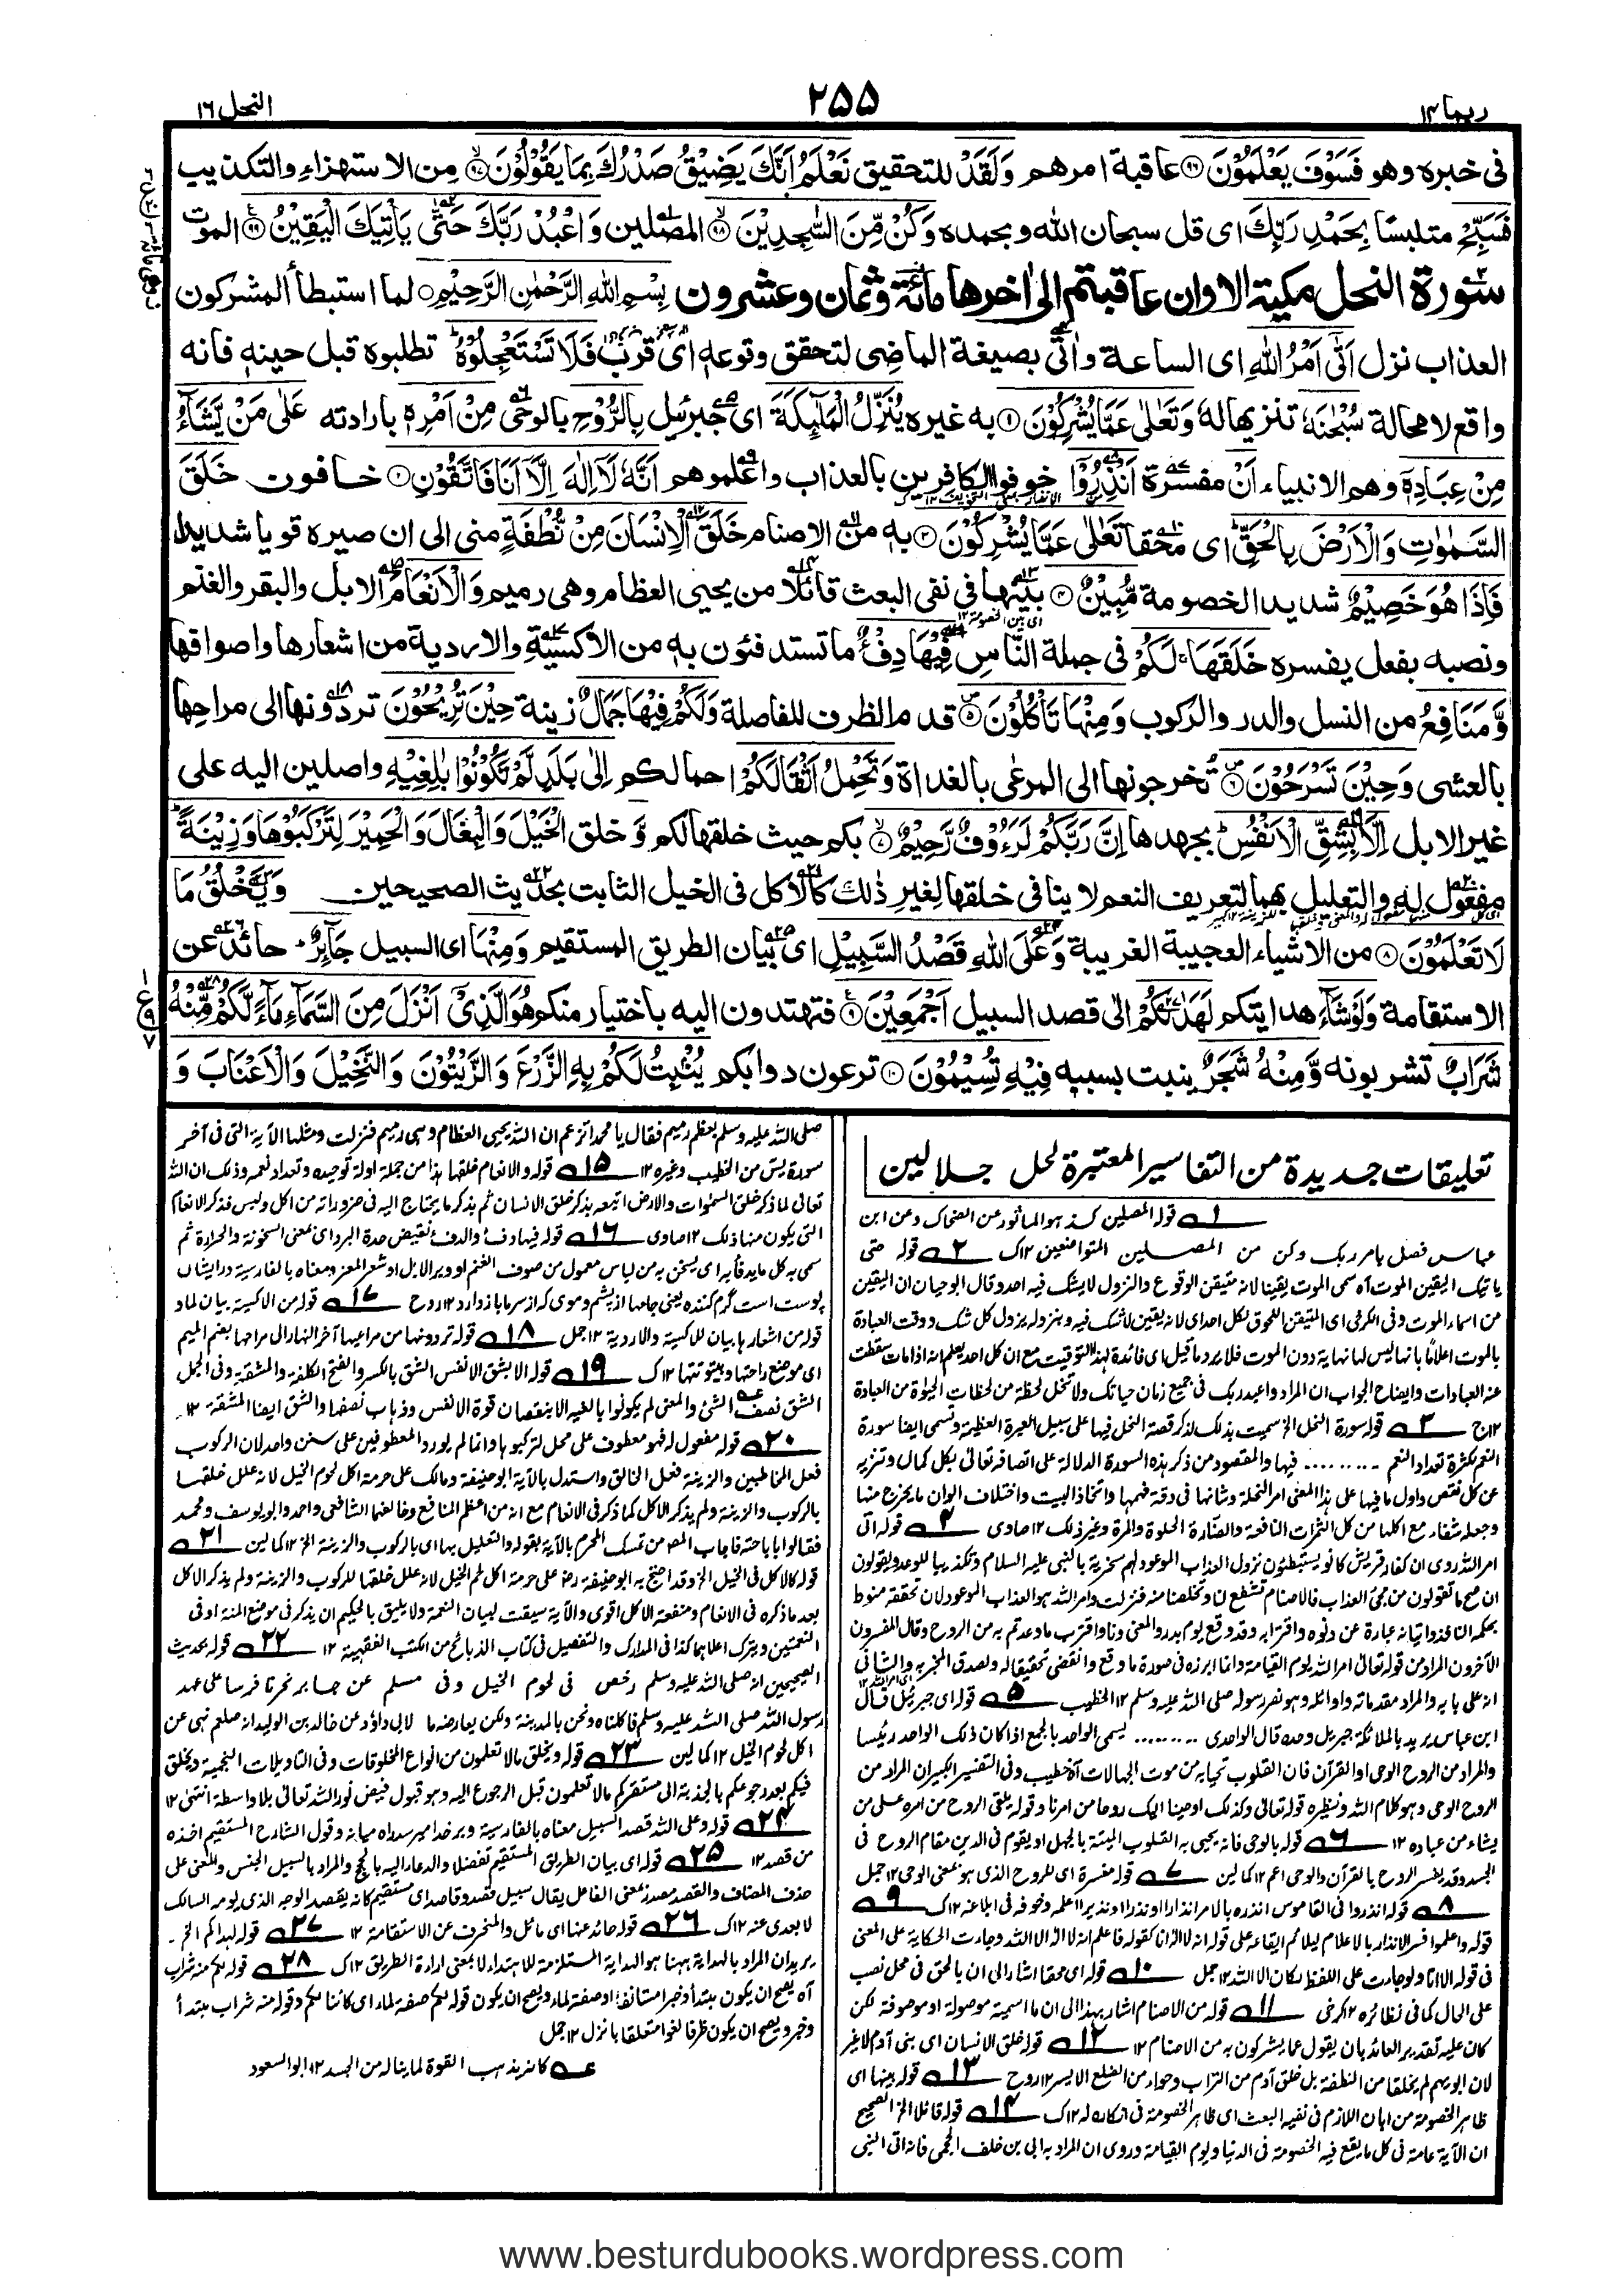 ربما ١٤
٢٥٥
النحل ١٦
فى خبره وهو فَسَوْفَ يَعْلَمُوْنَ ۝٩٦ عاقبة امرهم وَلَقَدْ للتحقيق نَعْلَمُ اَنَّكَ يَضِيْقُ صَدْرُكَ بِمَا يَقُوْلُوْنَ ۝٩٧ من الاستهزاء والتكذيب
فَسَبِّحْ متلبسا بِحَمْدِ رَبِّكَ اى قل سبحان الله وبحمده وَكُنْ مِّنَ السّٰجِدِيْنَ ۝٩٨ المصلين وَاعْبُدْ رَبَّكَ حَتّٰى يَاْتِيَكَ الْيَقِيْنُ ۝٩٩ الموت
سورة النحل مكية الا وان عاقبتم الى اخرها مائة وثمان وعشرون بِسْمِ اللهِ الرَّحْمٰنِ الرَّحِيْمِ ۝ لما استبطأ المشركون
العذاب نزل اَتٰٓى اَمْرُ اللهِ اى الساعة واتى بصيغة الماضى لتحقق وقوعه اى قرب فَلَا تَسْتَعْجِلُوْهُ تطلبوه قبل حينه فانه
واقع لا محالة سُبْحٰنَهٗ تنزيها له وَتَعٰلٰى عَمَّا يُشْرِكُوْنَ ۝١ به غيره يُنَزِّلُ الْمَلٰٓئِكَةَ اى جبرئيل بِالرُّوْحِ بالوحى مِنْ اَمْرِهٖ بارادته عَلٰى مَنْ يَّشَآءُ
مِنْ عِبَادِهٖٓ وهم الانبياء اَنْ مفسرة اَنْذِرُوْٓا خوفوا الكافرين بالعذاب واعلموهم اَنَّهٗ لَآ اِلٰهَ اِلَّآ اَنَا فَاتَّقُوْنِ ۝٢ خافون خَلَقَ
السَّمٰوٰتِ وَالْاَرْضَ بِالْحَقِّ اى محقا تَعٰلٰى عَمَّا يُشْرِكُوْنَ ۝٣ به من الاصنام خَلَقَ الْاِنْسَانَ مِنْ نُّطْفَةٍ منى الى ان صيره قويا شديدا
فَاِذَا هُوَ خَصِيْمٌ شديد الخصومة مُّبِيْنٌ ۝٤ بينها فى نفى البعث قائلا من يحيى العظام وهى رميم وَالْاَنْعَامَ الابل والبقر والغنم
ونصبه بفعل يفسره خَلَقَهَا لَكُمْ فى جملة الناس فِيْهَا دِفْءٌ ما تستدفئون به من الاكسية والاردية من اشعارها واصوافها
وَّمَنَافِعُ من النسل والدر والركوب وَمِنْهَا تَاْكُلُوْنَ ۝٥ قدم الظرف للفاصلة وَلَكُمْ فِيْهَا جَمَالٌ زينة حِيْنَ تُرِيْحُوْنَ تردونها الى مراحها
بالعشى وَحِيْنَ تَسْرَحُوْنَ ۝٦ تخرجونها الى المرعى بالغداة وَتَحْمِلُ اَثْقَالَكُمْ احمالكم اِلٰى بَلَدٍ لَّمْ تَكُوْنُوْا بٰلِغِيْهِ واصلين اليه على
غير الابل اِلَّا بِشِقِّ الْاَنْفُسِ بجهدها اِنَّ رَبَّكُمْ لَرَءُوْفٌ رَّحِيْمٌ ۝٧ بكم حيث خلقها لكم وَّ خلق الْخَيْلَ وَالْبِغَالَ وَالْحَمِيْرَ لِتَرْكَبُوْهَا وَزِيْنَةً
مفعول له والتعليل بهما لتعريف النعم لا ينافى خلقها لغير ذلك كالاكل فى الخيل الثابت بحديث الصحيحين وَيَخْلُقُ مَا
لَا تَعْلَمُوْنَ ۝٨ من الاشياء العجيبة الغريبة وَعَلَى اللهِ قَصْدُ السَّبِيْلِ اى بيان الطريق المستقيم وَمِنْهَا اى السبيل جَآئِرٌ حائد عن
الاستقامة وَلَوْ شَآءَ هدايتكم لَهَدٰىكُمْ الى قصد السبيل اَجْمَعِيْنَ ۝٩ فتهتدون اليه باختيار منكم هُوَ الَّذِيْٓ اَنْزَلَ مِنَ السَّمَآءِ مَآءً لَّكُمْ مِّنْهُ
شَرَابٌ تشربونه وَّمِنْهُ شَجَرٌ ينبت بسببه فِيْهِ تُسِيْمُوْنَ ۝١٠ ترعون دوابكم يُنْۢبِتُ لَكُمْ بِهِ الزَّرْعَ وَالزَّيْتُوْنَ وَالنَّخِيْلَ وَالْاَعْنَابَ وَ
تعليقات جديدة من التفاسير المعتبرة لحل جلالين
١ قوله المصلين كذا هو الماثور عن الضحاك وعن ابن
عباس فصل بامر ربك وكن من المصلين المتواضعين ١٢ك ٢ قوله حتى
ياتيك اليقين الموت آه سمى الموت يقينا لانه متيقن الوقوع والنزول لا يشك فيه احد وقال ابو حيان ان اليقين
من اسماء الموت وفى الكرخى اى المتيقن اللحوق بكل احد اى لانه يقين لا شك فيه وبنزوله يزول كل شك ووقت العبادة
بالموت اعلاما بانها ليس لها نهاية دون الموت فلا يرد ما قيل اى فائدة لهذا التوقيت مع ان كل احد يعلم انه اذا مات سقطت
عنه العبادات وايضاح الجواب ان المراد واعبد ربك فى جميع زمان حياتك ولا تخل لحظة من لحظات الحيوة من العبادة
١٢ج ٣ قوله سورة النحل الخ سميت بذلك لذكر قصة النحل فيها على سبيل العبرة العظيمة وتسمى ايضا سورة
النعم لكثرة تعداد النعم ......... فيها والمقصود من ذكر هذه السورة الدلالة على اتصافه تعالى بكل كمال وتنزيه
عن كل نقص واول ما فيها على هذا المعنى امر النحلة وشانها فى دقة فهمها واتخاذ البيت واختلاف الوان ما يخرج منها
وجعله شفاء مع اكلها من كل الثمرات النافعة والضارة الحلوة والمرة وغير ذلك ١٢ صاوى ٤ قوله اتى
امر الله روى ان كفار قريش كانوا يستبطئون نزول العذاب الموعود لهم سخرية بالنبى عليه السلام وتكذيبا للوعد ويقولون
ان صح ما تقولون من مجئ العذاب فالاصنام تشفع لنا وتخلصنا منه فنزلت وامر الله هو العذاب الموعود لان تحققه منوط
بحكمه النافذ واتيانه عبارة عن دنوه واقترابه وقد وقع يوم بدر والمعنى دنا واقترب ما وعدتم به من الروح وقال المفسرون
الآخرون المراد من قوله تعالى امر الله يوم القيامة وانما ابرزه فى صورة ما وقع وانقضى تحقيقا له ولصدق المخبر به والثانى
انه على بابه والمراد مقدماته واوائله وهو نصر رسوله صلى الله عليه وسلم ١٢ الخطيب ٥ قوله اى جبريل قال
ابن عباس يريد بالملائكة جبريل وحده قال الواحدى ......... يسمى الواحد بالجمع اذا كان ذلك الواحد رئيسا
والمراد من الروح الوحى او القرآن فان القلوب تحيا به من موت الجهالات آه خطيب وفى التفسير الكبير ان المراد من
الروح الوحى وهو كلام الله ونظيره قوله تعالى وكذلك اوحينا اليك روحا من امرنا وقوله يلقى الروح من امره على من
يشاء من عباده ١٢ ٦ قوله بالوحى فانه يحيى به القلوب الميتة بالجهل او يقوم فى الدين مقام الروح فى
الجسد وقد يفسر الروح بالقرآن والوحى اعم ١٢ كمالين ٧ قوله مفسرة اى للروح الذى هو بمعنى الوحى ١٢ جمل
٨ قوله انذروا فى القاموس انذره بالامر انذارا ونذرا ونذيرا اعلمه وخوفه فى ابلاغه ١٢ك ٩
قوله واعلموا فسر الانذار بالاعلام ليلائم ايقاعه على قوله انه لا اله الا انا كقوله فاعلم انه لا اله الا الله وجاءت الحكاية على المعنى
فى قوله الا انا ولو جاءت على اللفظ لكان الا الله ١٢ جمل ١٠ قوله اى محقا اشار الى ان بالحق فى محل نصب
على الحال كما فى نظائره ١٢ كرخى ١١ قوله من الاصنام اشار بهذا الى ان ما اسمية موصولة او موصوفة لكن
كان عليه تقدير العائد بان يقول عما يشركون به من الاصنام ١٢ ١٢ قوله خلق الانسان اى بنى آدم لا غير
لان ابويهم لم يخلقا من النطفة بل خلق آدم من التراب وحواء من الضلع الايسر ١٢ روح ١٣ قوله بينها اى
ظاهر الخصومة من ابان اللازم فى نفيه البعث اى ظاهر الخصومة فى انكاره له ١٢ك ١٤ قوله قائلا الخ الصحيح
ان الآية عامة فى كل ما يقع فيه الخصومة فى الدنيا ويوم القيامة وروى ان المراد به ابى بن خلف الجمحى فانه اتى النبى
صلى الله عليه وسلم بعظم رميم فقال يا محمد اتزعم ان الله يحيى العظام وهى رميم فنزلت ومثلها الآية التى فى آخر
سورة يس من الخطيب وغيره ١٢ ١٥ قوله والانعام خلقها هذا من جملة ادلة توحيده وتعداد نعمه وذلك ان الله
تعالى لما ذكر خلق السموات والارض اتبعه بذكر خلق الانسان ثم بذكر ما يحتاج اليه فى ضروراته من اكل ولبس فذكر الانعام
التى يكون منها ذلك ١٢ صاوى ١٦ قوله فيها دفء والدفء نقيض حدة البرد اى بمعنى السخونة والحرارة ثم
سمى به كل ما يدفأ به اى يسخن به من لباس معمول من صوف الغنم او وبر الابل او شعر المعز ومعناه بالفارسية در ايشان
پوست است گرم كننده يعنى جامها از پشم وموى كه از سرما باز دارد ١٢ روح ١٧ قوله من الاكسية بيان لما و
قوله من اشعارها بيان للاكسية والاردية ١٢ جمل ١٨ قوله تردونها من مراعيها آخر النهار الى مراحها بضم الميم
اى موضع راحتها وبيتوتتها ١٢ك ١٩ قوله الا بشق الانفس الشق بالكسر والفتح الكلفة والمشقة وفى الجمل
الشق نصف الشئ والمعنى لم يكونوا بالغيه الا بنقصان قوة الانفس وذهاب نصفها والشق ايضا المشقة ١٢
٢٠ قوله مفعول له فهو معطوف على محل لتركبوها وانما لم يورد المعطوفين على سنن واحد لان الركوب
فعل المخاطبين والزينة فعل الخالق واستدل بالآية ابو حنيفة ومالك على حرمة اكل لحوم الخيل لانه علل خلقها
بالركوب والزينة ولم يذكر الاكل كما ذكر فى الانعام مع انه من اعظم المنافع وخالفهما الشافعى واحمد وابو يوسف ومحمد
فقالوا باباحته فاجاب المصـ من تمسك المحرم بالآية بقوله والتعليل بهما اى بالركوب والزينة الخ ١٢ كمالين ٢١
قوله كالاكل فى الخيل الخ وقد احتج به ابو حنيفة رضـ على حرمة اكل لحم الخيل لانه علل خلقها للركوب والزينة ولم يذكر الاكل
بعد ما ذكره فى الانعام ومنفعة الاكل اقوى والآية سيقت لبيان النعمة ولا يليق بالحكيم ان يذكر فى موضع المنة ادنى
النعمتين ويترك اعلاهما كذا فى المدارك والتفصيل فى كتاب الذبائح من الكتب الفقهية ١٢ ٢٢ قوله بحديث
الصحيحين انه صلى الله عليه وسلم رخص فى لحوم الخيل وفى مسلم عن جابر نحرنا فرسا على عهد
رسول الله صلى الله عليه وسلم فاكلناه ونحن بالمدينة ولكن يعارضه ما لابى داؤد عن خالد بن الوليد انه صلعم نهى عن
اكل لحوم الخيل ١٢ كمالين ٢٣ قوله ويخلق ما لا تعلمون من انواع المخلوقات وفى التاويلات النجمية ويخلق
فيكم بعد رجوعكم بالجذبة الى مستقركم ما لا تعلمون قبل الرجوع اليه وهو قبول فيض نور الله تعالى بلا واسطة انتهى ١٢
٢٤ قوله وعلى الله قصد السبيل معناه بالفارسية وبر خدا ميرسد راه ميانه وقول الشارح المستقيم اخذه
من قصد ١٢ ٢٥ قوله اى بيان الطريق المستقيم تفضلا والدعاء اليه بالحجج والمراد بالسبيل الجنس والمعنى على
حذف المضاف والقصد مصدر بمعنى الفاعل يقال سبيل قصد وقاصد اى مستقيم كانه يقصد الوجه الذى يومه السالك
لا يعدى عنه ١٢ك ٢٦ قوله حائد عنها اى مائل والمنحرف عن الاستقامة ١٢ ٢٧ قوله لهداكم الخ
يريد ان المراد بالهداية ههنا هو الهداية المستلزمة للاهتداء لا بمعنى اراءة الطريق ١٢ك ٢٨ قوله لكم منه شراب
آه يصح ان يكون مبتدأ وخبرا مستانفا او صفة لماء ويصح ان يكون قوله لكم صفة لماء اى كائنا لكم وقوله منه شراب مبتدأ
وخبر ويصح ان يكون ظرفا لغوا متعلقا بانزل ١٢ جمل
عه كانه يذهب القوة لما يناله من الجهد ١٢ ابو السعود
www.besturdubooks.wordpress.com